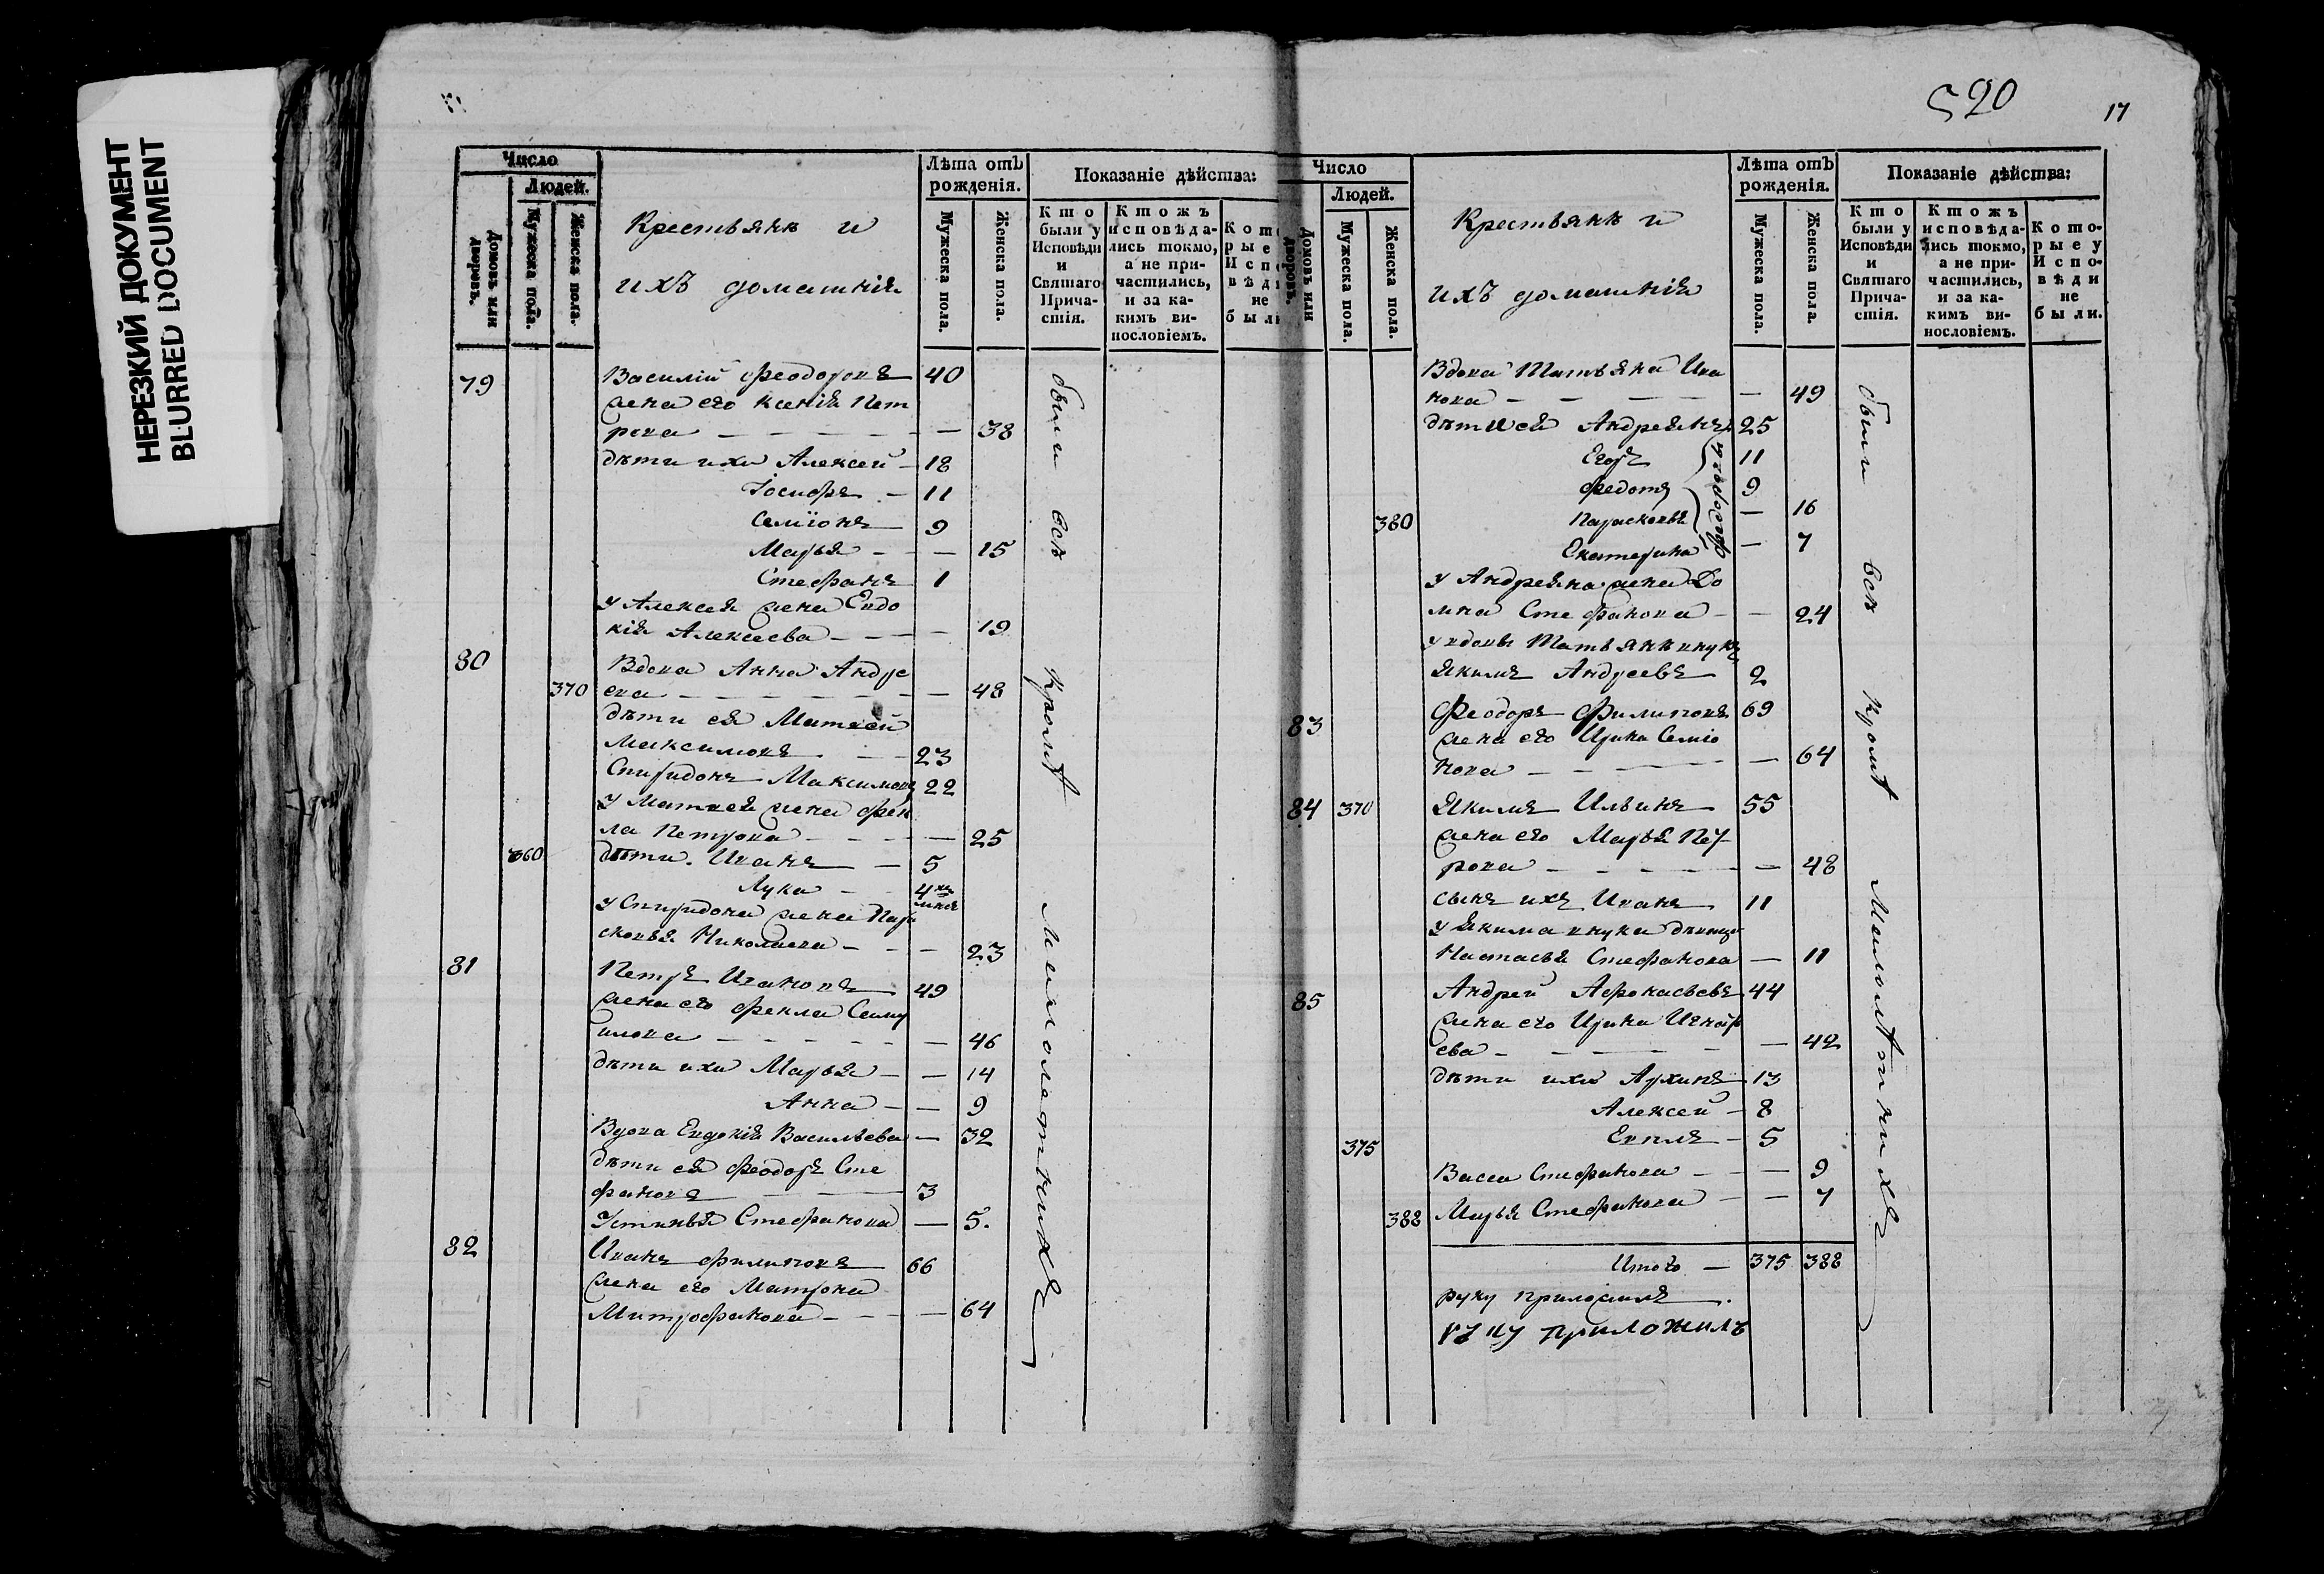 НЕРЕЗКИЙ ДОКУМЕНТ
BLURRED DOCUMENT
Число
Людей.
Домовъ или дворовъ.
Мужеска пола.
Женска пола.
Крестьянѣ и
ихъ домашнія
Лѣта отЪ рожденія.
Мужеска пола.
Женска пола.
Показаніе дѣйства:
Кто были у Исповѣди и Святаго Причастія.
Ктожъ исповѣдались токмо, а не причастились, и за какимъ винословіемъ.
79 Василій Феодоровъ 40
жена его Ксенія Пет
рова — — 38
дѣти ихъ Алексей — 18
Іосифъ — 11
Семіонъ 9
Марья — — 15
Стефанъ 1
у Алексея жена Евдо
кія Алексеева — — 19
80 Вдова Анна Андре
370 ева — — 48
дѣти ея Матвей
Максимовъ — 23
Спиридонъ Максимовъ 22
у Матвея жена Фек
ла Петрова — — 25
360 дѣти. Иванъ — 5
Лука — 4
у Спиридона жена Пара
сковья Николаева — — 23
81 Петръ Ивановъ 49
жена его Фекла Саму
илова — — 46
дѣти ихъ Марья — — 14
Анна — — 9
Вдова Евдокія Васильева — 32
дѣти ея Феодоръ Сте
фановъ 3
Устинья Стефанова — 5.
82 Иванъ Филиповъ 66
жена его Матрона
Митрофанова — — 64
были всѣ кромѣ малолетнихъ
520
17
Число
Людей.
Домовъ или дворовъ.
Мужеска пола.
Женска пола.
Крестьянѣ и
ихъ домашнія
Лѣта отЪ рожденія.
Мужеска пола.
Женска пола.
Показаніе дѣйства:
Кто были у Исповѣди и Святаго Причастія.
Ктожъ исповѣдались токмо, а не причастились, и за какимъ винословіемъ.
Которые у Исповѣди не были.
Вдова Татьяна Ива
нова — — 49
дѣти ея Андреянъ 25
Егоръ 11
Федотъ 9
380 Парасковья — 16
Екатерина — 7
у Андреяна жена До
мна Стефанова — — 24
у вдовы Татьянѣ внукъ
Якимъ Андреевъ 2
83 Феодоръ Филиповъ 69
жена его Ирина Семіо
нова — — 64
84 370 Якимъ Ильинъ 55
жена его Марья Пет
рова — — 48
сынъ ихъ Иванъ 11
у Якима внука
Настасья Стефанова — 11
85 Андрей Афонасьевъ 44
жена его Ирина
ева — — 42
дѣти ихъ Архипъ 13
Алексей — 8
375 Евпля — 5
Васса Стефанова — — 9
388 Марья Стефанова — — 7
Итого — 375 388
руку приложилъ.
руку приложилъ
были всѣ кромѣ малолѣтнихъ